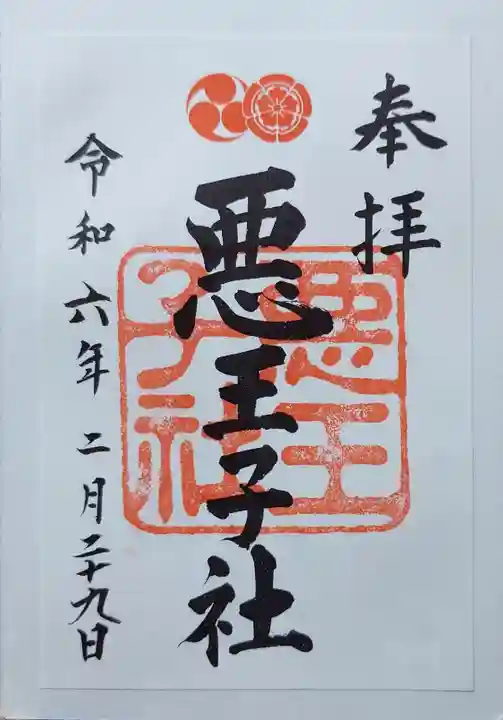 奉拝
悪王子社
悪王
子社
令和六年二月二十九日